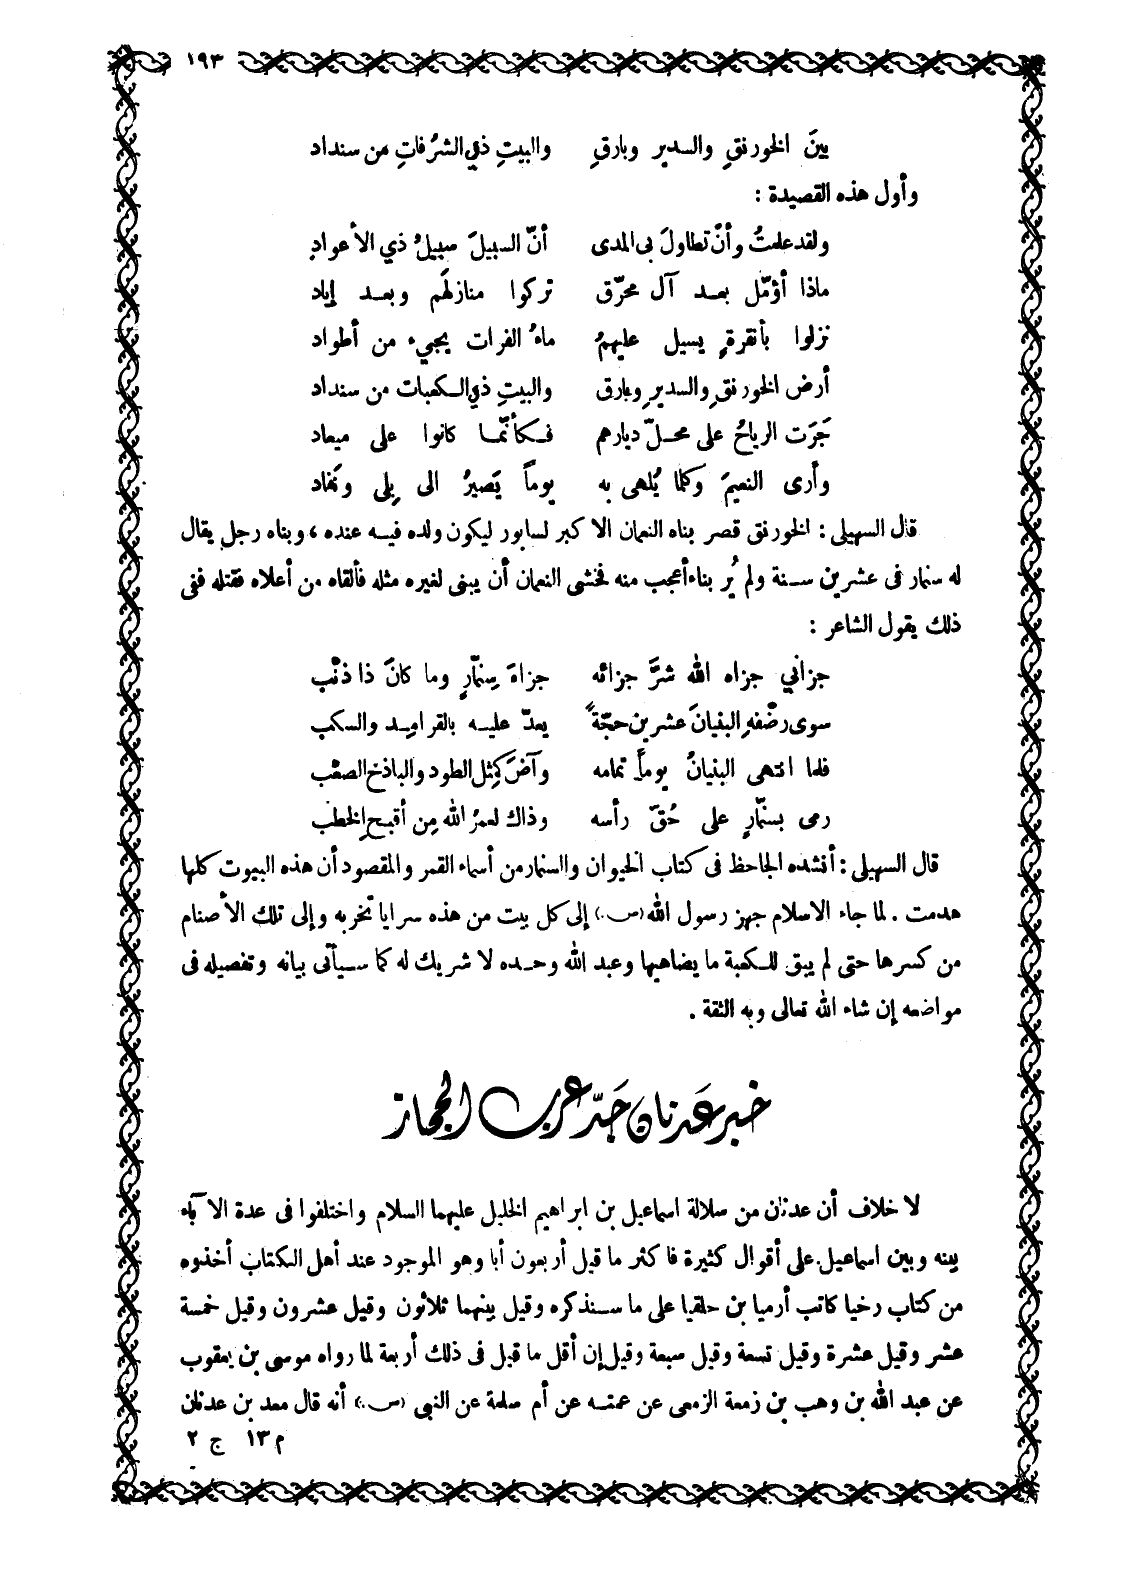 ١٩٣
بينَ الخورنقِ والسدير وبارقِ والبيتِ ذي الشرُفاتِ من سنداد
وأول هذه القصيدة :
ولقد علمتُ وأنّ تطاولَ بى المدى أنّ السبيلَ سبيلُ ذي الأعوادِ
ماذا أؤمّل بعد آل محرّق تركوا منازلهَم وبعد إياد
نزلوا بأنقرةٍ يسيل عليهمُ ماءُ الفرات يجيء من أطواد
أرض الخورنقِ والسديرِ وبارق والبيتِ ذي الكعبات من سنداد
جَرَت الرياحُ على محلّ ديارهم فكأنّما كانوا على ميعاد
وأرى النعيمَ وكلما يُلهى به يوماً يَصيرُ الى بِلى ونَفاد
قال السهيلى : الخورنق قصر بناه النعمان الاكبر لسابور ليكون ولده فيه عنده ، وبناه رجل يقال
له سنمار فى عشرين سنة ولم يُر بناء أعجب منه فخشى النعمان أن يبنى لغيره مثله فألقاه من أعلاه فقتله ففى
ذلك يقول الشاعر :
جزاني جزاه الله شرَّ جزائه جزاءَ سِنمّارٍ وما كانَ ذا ذنْب
سوى رضْفهِ البنيانَ عشرين حجّةً يعدّ عليه بالقراميد والسكب
فلما انتهى البنيانُ يوماً تمامه وآضَ كمِثلِ الطود والباذخ الصعْب
رمى بسنمّارٍ على حُقّ رأسه وذاك لعمرُ الله مِن أقبحِ الخطب
قال السهيلى : أنشده الجاحظ فى كتاب الحيوان والسنمار من أسماء القمر والمقصود أن هذه البيوت كلها
هدمت . لما جاء الاسلام جهز رسول الله (ص.) إلى كل بيت من هذه سرايا تخربه وإلى تلك الأصنام
من كسرها حتى لم يبق للكعبة ما يضاهيها وعبد الله وحده لا شريك له كما سيأتى بيانه وتفصيله فى
مواضعه إن شاء الله تعالى وبه الثقة .
خبر عدنان جَدّ عرب الحجاز
لا خلاف أن عدنان من سلالة اسماعيل بن ابراهيم الخليل عليهما السلام واختلفوا فى عدة الآباء
بينه وبين اسماعيل على أقوال كثيرة فاكثر ما قيل أربعون أبا وهو الموجود عند أهل الكتاب أخذوه
من كتاب رخيا كاتب أرميا بن حلقيا على ما سنذكره وقيل بينهما ثلاثون وقيل عشرون وقيل خمسة
عشر وقيل عشرة وقيل تسعة وقيل سبعة وقيل إن أقل ما قيل فى ذلك أربعة لما رواه موسى بن يعقوب
عن عبد الله بن وهب بن زمعة الزمعى عن عمته عن أم سلمة عن النبي (ص.) أنه قال معد بن عدنان
م ١٣ ج ٢